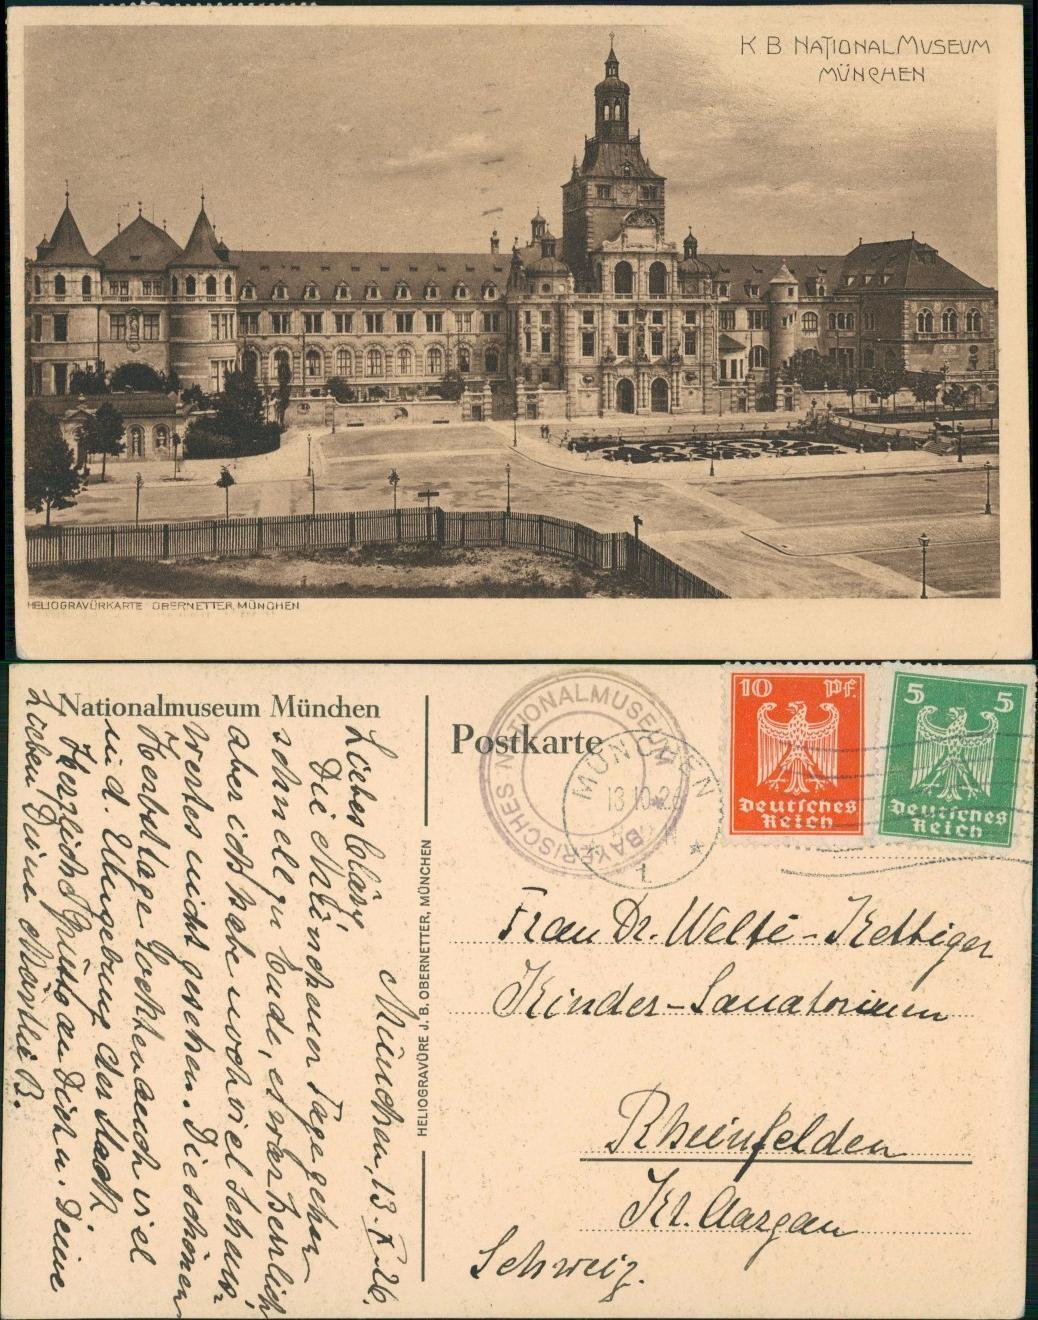 K B NATIONALMUSEUM
MÜNCHEN
HELIOGRAVÜRKARTE OBERNETTER, MÜNCHEN
Nationalmuseum München
Postkarte
BAYERISCHES NATIONALMUSEUM
MÜNCHEN
13.10.26
1
10 Pf.
Deutsches
Reich
5 5
Deutsches
Reich
HELIOGRAVÜRE J. B. OBERNETTER, MÜNCHEN
München, 13. X. 26.
Liebes Cläsy
Die Münchener Tage gehen
schnell zu Ende, es war herrlich
aber ich habe noch viel Sehens-
wertes nicht gesehen. Die schönen
Herbsttage lockten auch viel
in d. Umgebung der Stadt.
Herzliche Grüsse an Dich u. Deine
Lieben Deine B.
Frau Dr. Welti-Kettiger
Kinder-Sanatorium
Rheinfelden
Kt. Aargau
Schweiz.